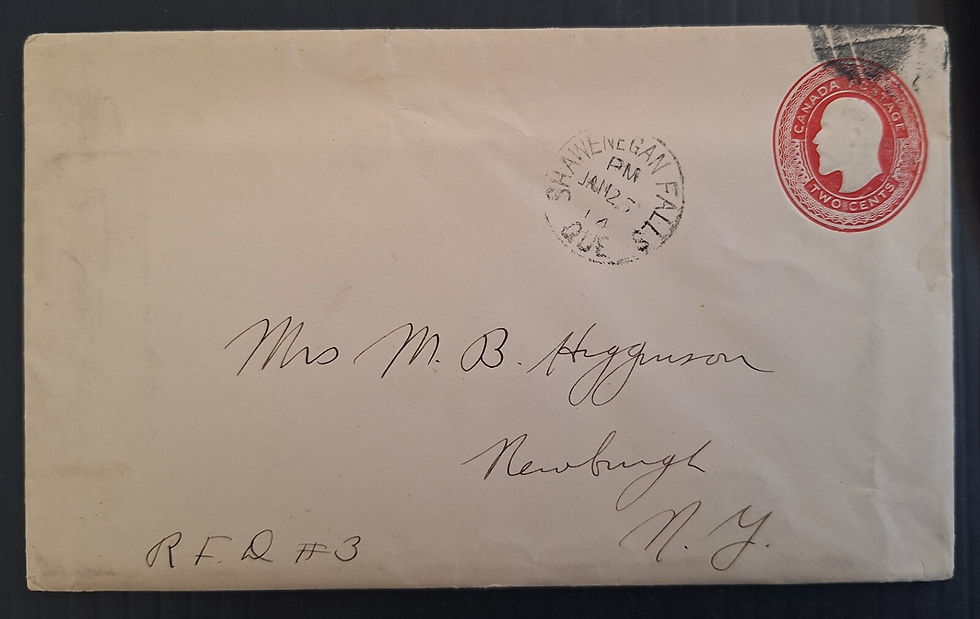 CANADA POSTAGE
TWO CENTS
SHAWENEGAN FALLS
PM
JAN 2
14
QUE
Mrs M. B. Higginson
Newburgh
N. Y.
R F. D #3